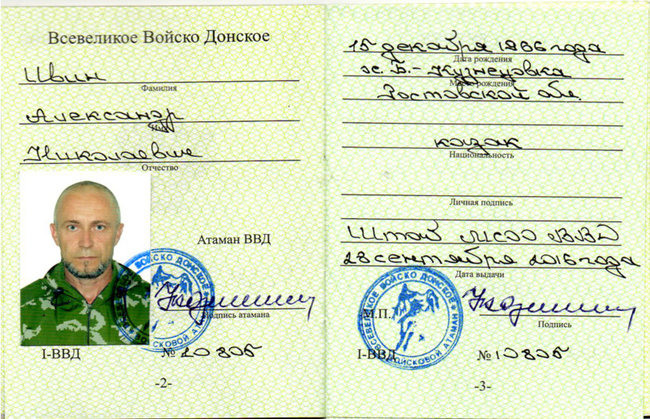 Всевеликое Войско Донское
Ивин
Фамилия
Александр
Николаевич
Отчество
Атаман ВВД
ВОЙСКО ДОНСКОЕ
Подпись атамана
I-ВВД № 10806
-2-
15 декабря 1966 года
Дата рождения
х. Б.- Кузнецовка
Место рождения
Ростовской обл.
казак
Национальность
Личная подпись
Штаб МСОО ВВД
28 сентября 2016 года
Дата выдачи
М.П.
ВСЕВЕЛИКОЕ ВОЙСКО ДОНСКОЕ ВОЙСКОВОЙ АТАМАН
Подпись
I-ВВД № 10806
-3-